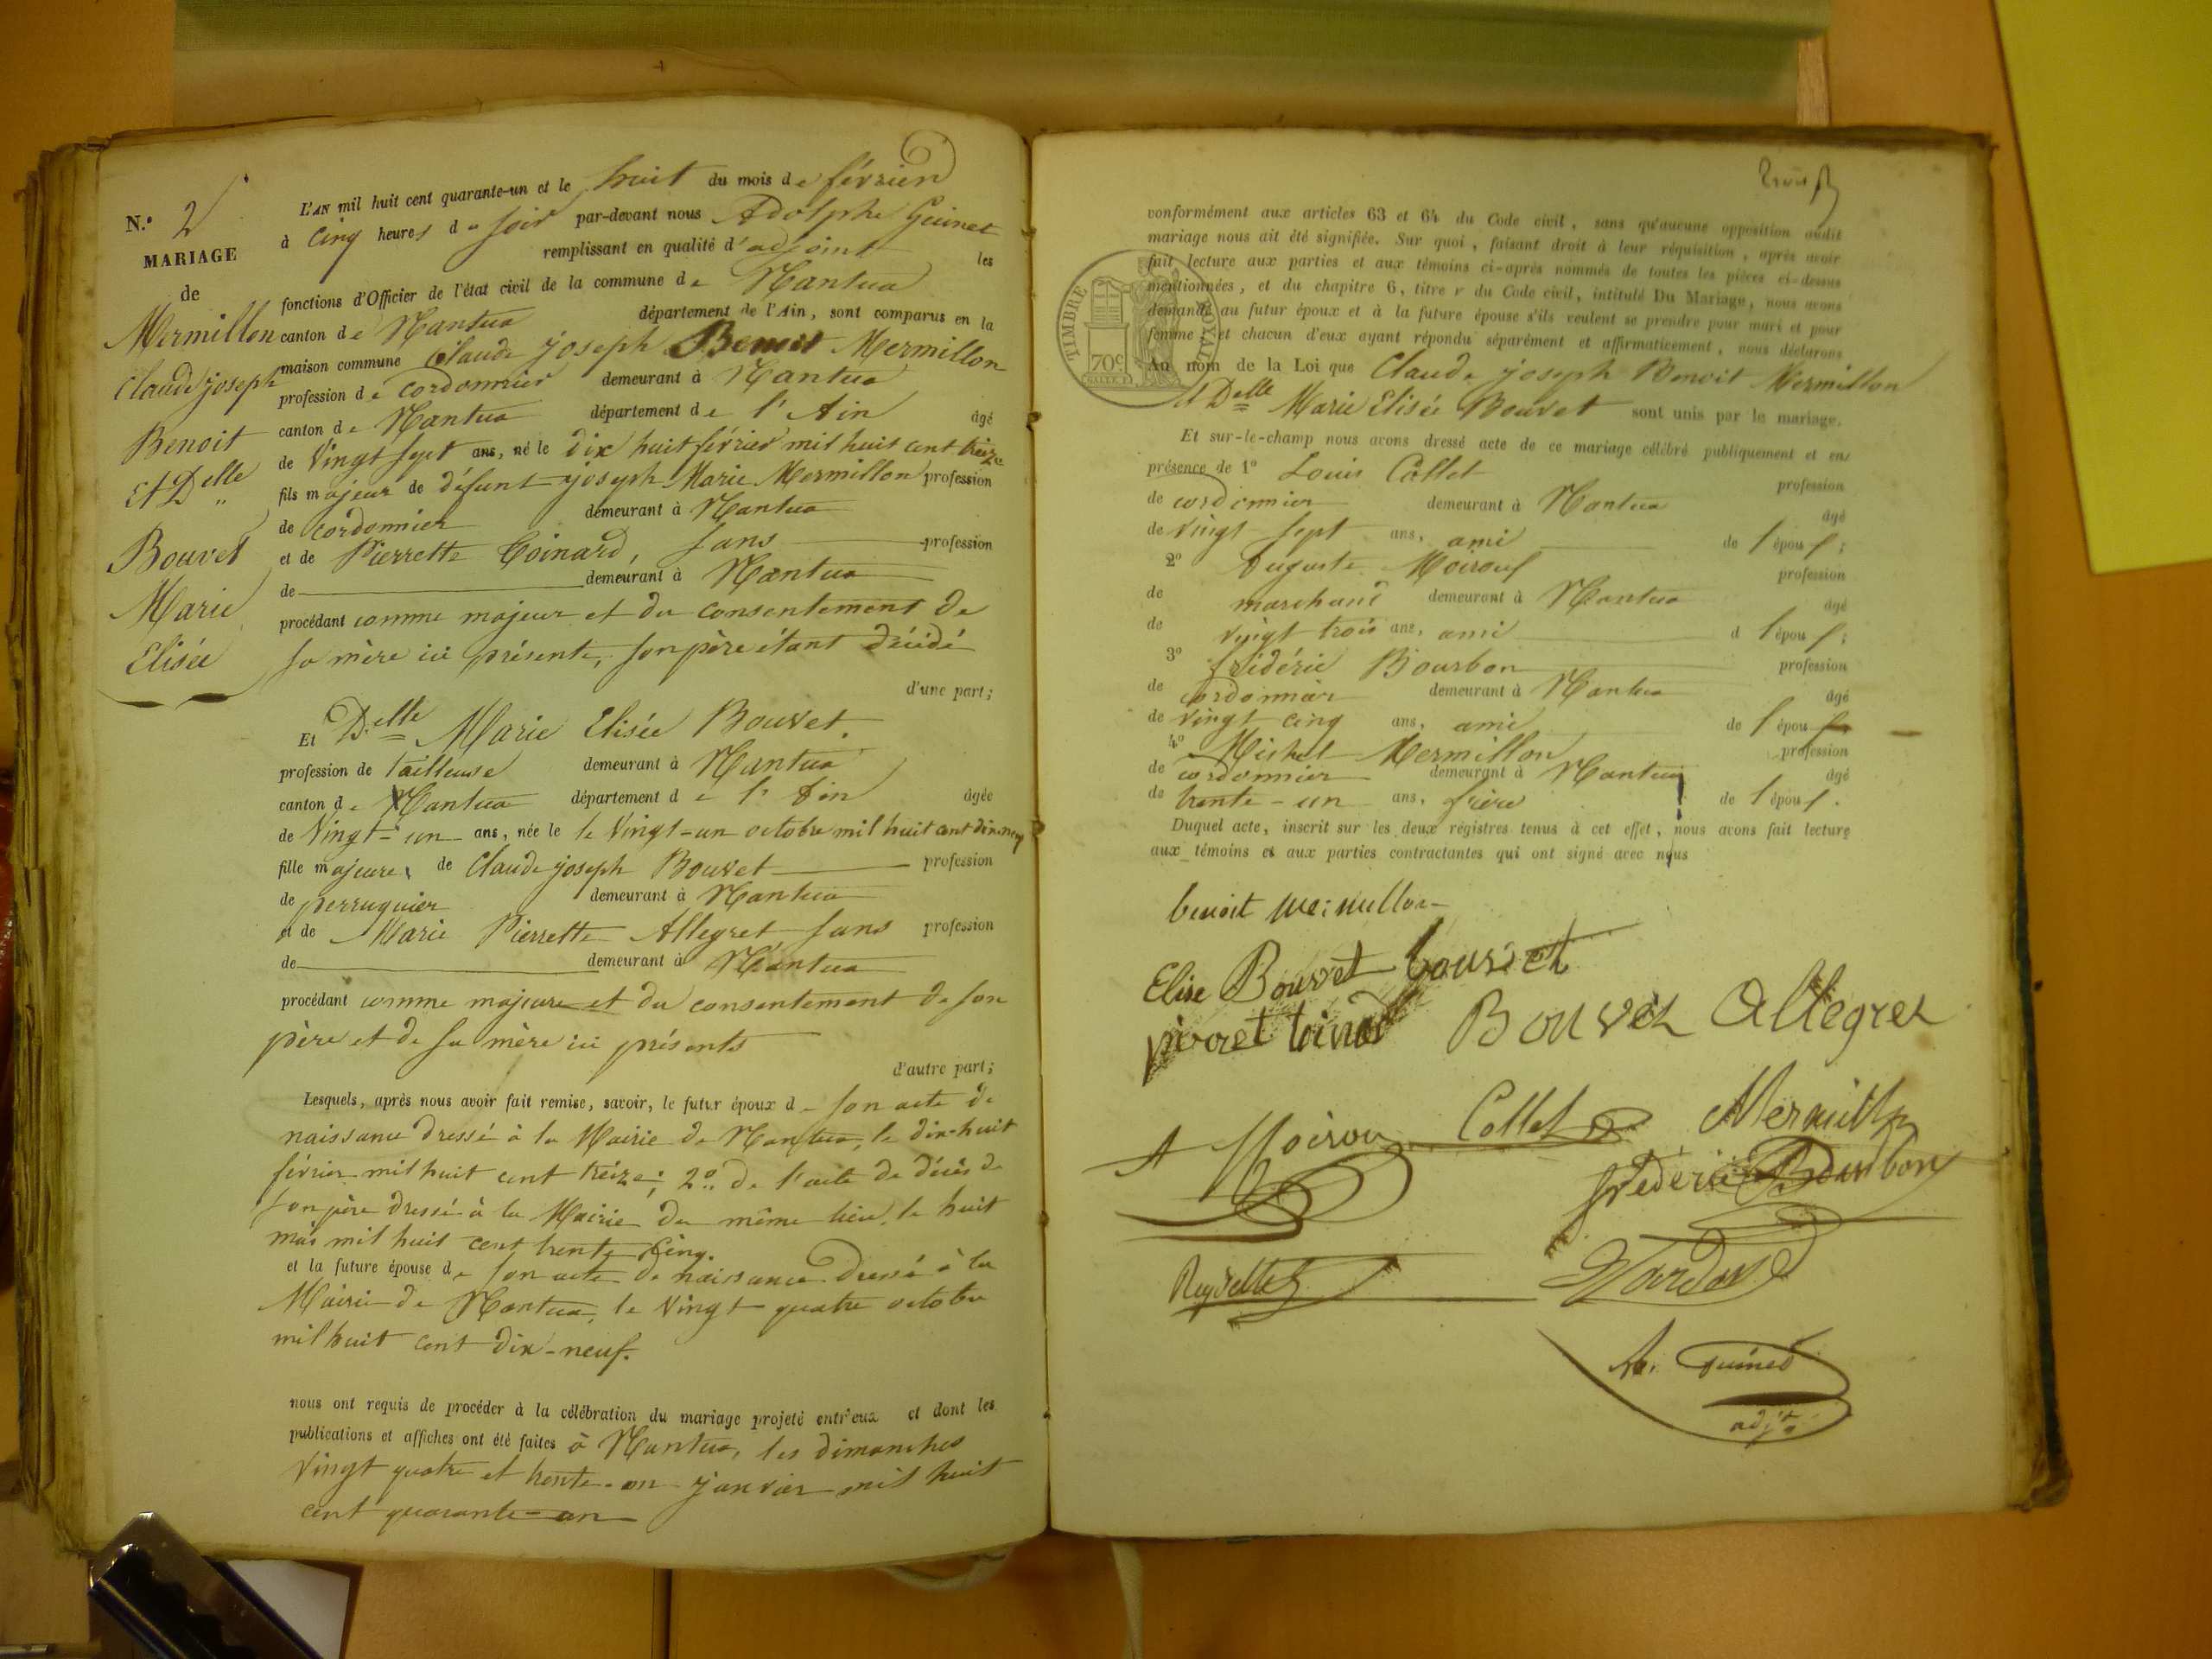 N.° 2
MARIAGE
de
Mermillon
Claude joseph
Benoit
Et Delle
Bouvet
Marie
Elisée
L'AN mil huit cent quarante-un et le huit du mois de février
à cinq heures du soir par-devant nous Adolphe Guinet
remplissant en qualité d'adjoint les
fonctions d'Officier de l'état civil de la commune de Nantua
canton de Nantua département de l'Ain, sont comparus en la
maison commune Claude joseph Benoit Mermillon
profession de Cordonnier demeurant à Nantua
canton de Nantua département de l'Ain âgé
de Vingt sept ans, né le dix huit février mil huit cent treize
fils majeur de défunt joseph Marie Mermillon profession
de cordonnier demeurant à Nantua
et de Pierrette Coinard, sans profession
de demeurant à Nantua
procédant comme majeur et du consentement de
sa mère ici présente, son père étant décédé
d'une part;
Et Delle Marie Elisée Bouvet.
profession de tailleuse demeurant à Nantua
canton de Nantua département de l'Ain âgée
de Vingt-un ans, née le le Vingt-un octobre mil huit cent dix-neuf
fille majeure de Claude joseph Bouvet profession
de perruquier demeurant à Nantua
et de Marie Pierrette Allegret sans profession
de demeurant à Nantua
procédant comme majeure et du consentement de son
père et de sa mère ici présents
d'autre part;
Lesquels, après nous avoir fait remise, savoir, le futur époux de son acte de
naissance dressé à la Mairie de Nantua, le dix-huit
février mil huit cent treize; 2.° de l'acte de décès de
son père dressé à la Mairie du même lieu, le huit
mai mil huit cent trente cinq.
et la future épouse de son acte de naissance dressé à la
Mairie de Nantua, le Vingt quatre octobre
mil huit cent dix-neuf.
nous ont requis de procéder à la célébration du mariage projeté entr'eux et dont les
publications et affiches ont été faites à Nantua, les dimanches
Vingt quatre et trente-un janvier mil huit
cent quarante-un
conformément aux articles 63 et 64 du Code civil, sans qu'aucune opposition audit
mariage nous ait été signifiée. Sur quoi, faisant droit à leur réquisition, après avoir
fait lecture aux parties et aux témoins ci-après nommés de toutes les pièces ci-dessus
mentionnées, et du chapitre 6, titre v du Code civil, intitulé Du Mariage, nous avons
demandé au futur époux et à la future épouse s'ils veulent se prendre pour mari et pour
femme; et chacun d'eux ayant répondu séparément et affirmativement, nous déclarons
TIMBRE ROYAL
70c
Au nom de la Loi que Claude joseph Benoit Mermillon
et Delle Marie Elisée Bouvet sont unis par le mariage.
Et sur-le-champ nous avons dressé acte de ce mariage célébré publiquement et en
présence de 1° Louis Collet profession
de cordonnier demeurant à Nantua âgé
de Vingt sept ans, ami de l'époux;
2° Auguste Moiroux profession
de marchand demeurant à Nantua âgé
de vingt trois ans, ami d l'époux;
3° frédéric Bourbon profession
de cordonnier demeurant à Nantua âgé
de vingt cinq ans, ami de l'époux
4° Michel Mermillon profession
de cordonnier demeurant à Nantua âgé
de trente-un ans, frère de l'époux.
Duquel acte, inscrit sur les deux régistres tenus à cet effet, nous avons fait lecture
aux témoins et aux parties contractantes qui ont signé avec nous
benoit Mermillon
Elise Bouvet bouvet
Bouvet Allegret
A Moiroux Collet Mermillon
frédéric Bourbon
A. Guinet
adj.t